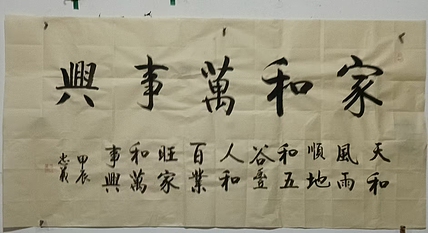 家和萬事興
天和
風雨
順地
和五
谷豊
人和
百業
旺家
和萬
事興
甲辰